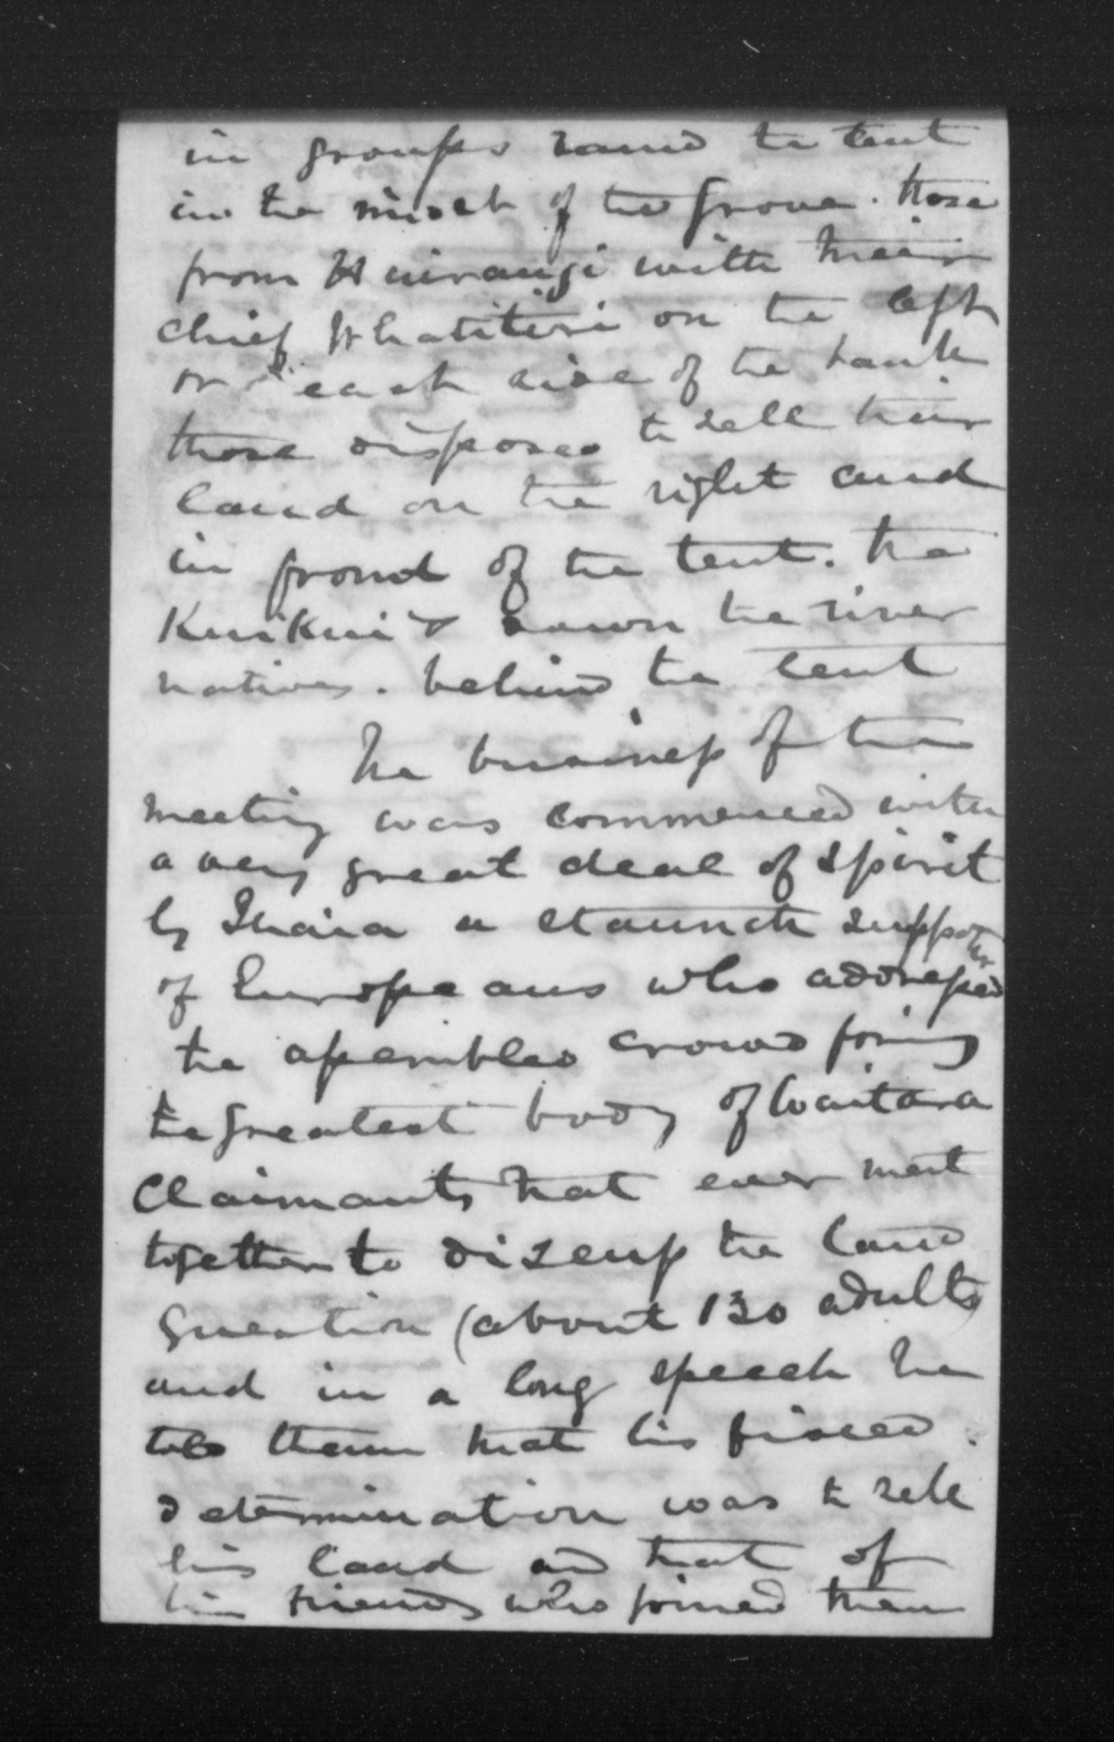 in groups round the tent
in the midst of the grove. those
from Huirangi with their
chief Whatitiri on the left
or each side of the bank
those disposed to sell their
land on the right and
in frond of the tent. the
Kuikui & down the river
natives. behind the tent
The business of the
meeting was commenced with
a very great deal of spirit
by Ihaia a staunch supporter
of Europeans who addressed
the assembled crowd forming
the greatest body of Waitara
Claimants that ever meet
together to discuss the land
question (about 130 adults)
and in a long speech he
told them that his fixed
determination was to sell
his land and that of
his friends who joined them